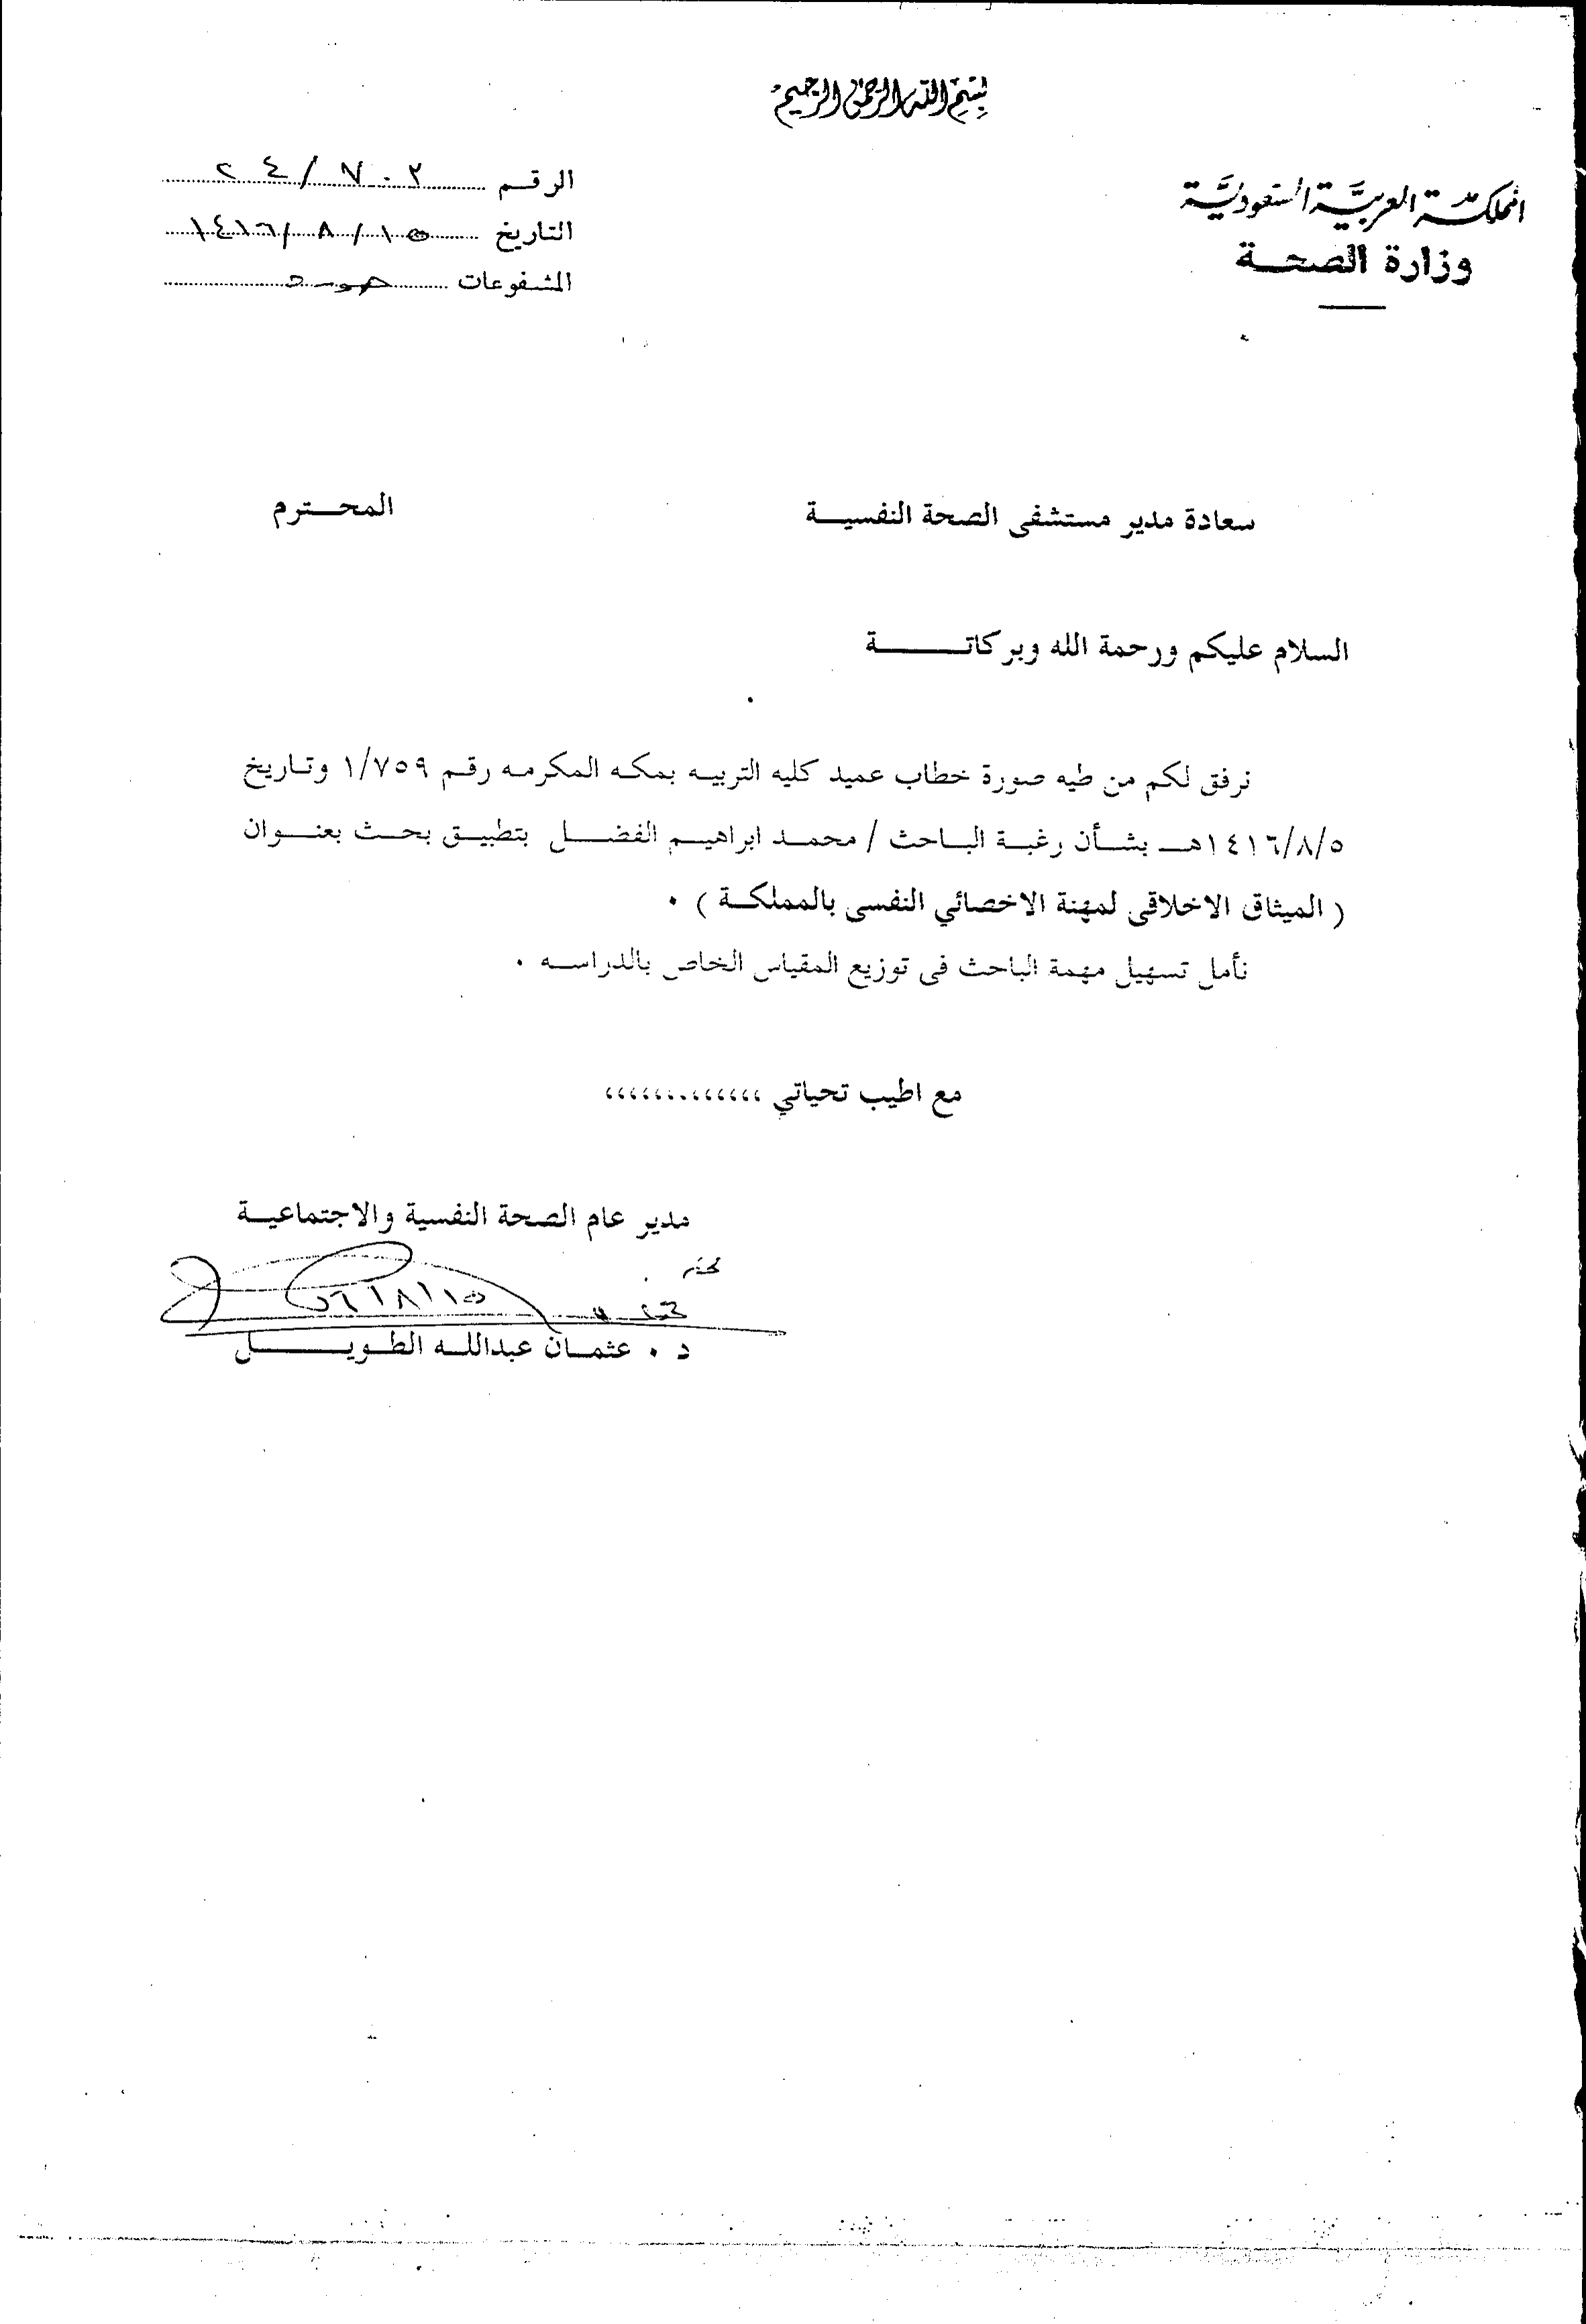 بسم الله الرحمن الرحيم
المملكة العربية السعودية
وزارة الصحة
الرقم ٢٤/٧٠٢
التاريخ ١٤١٦/٨/١٥
المشفوعات
سعادة مدير مستشفى الصحة النفسية المحترم
السلام عليكم ورحمة الله وبركاتة
نرفق لكم من طيه صورة خطاب عميد كليه التربيه بمكه المكرمه رقم ١/٧٥٩ وتاريخ
١٤١٦/٨/٥هـ بشأن رغبة الباحث / محمد ابراهيم الفضل بتطبيق بحث بعنوان
( الميثاق الاخلاقى لمهنة الاخصائي النفسى بالمملكة ) ٠
نأمل تسهيل مهمة الباحث فى توزيع المقياس الخاص بالدراسه ٠
مع اطيب تحياتي ،،،،،،،،،،،،،
مدير عام الصحة النفسية والاجتماعية
د ٠ عثمان عبدالله الطويل